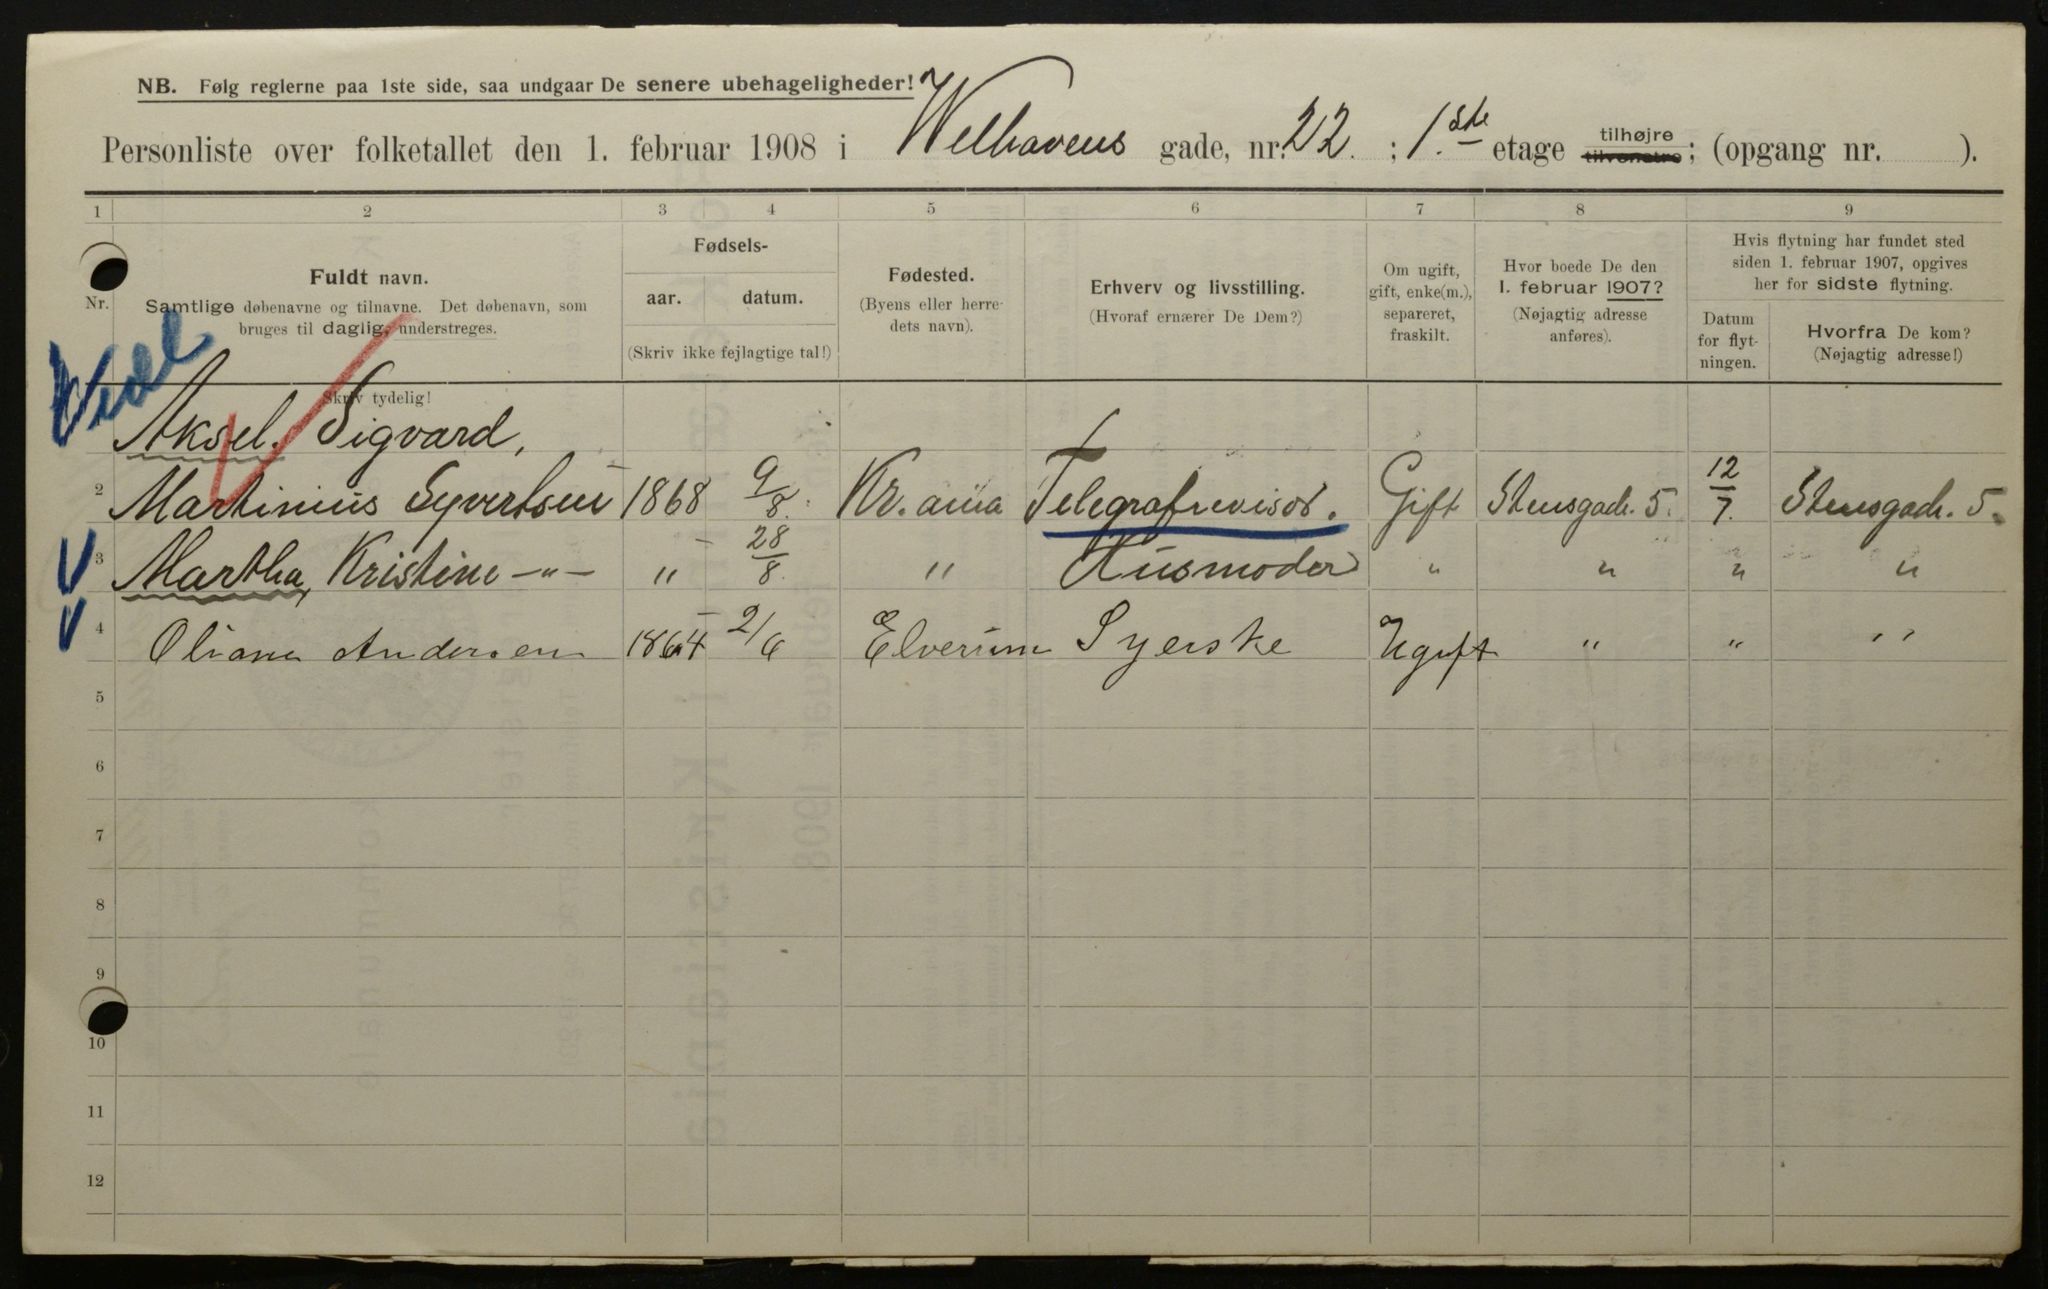 NB. Følg reglerne paa 1ste side, saa undgaar De senere ubehageligheder!
Personliste over folketallet den 1. februar 1908 i Welhavens gade, nr. 22. ; 1.ste etage tilhøjre tilvenstre; (opgang nr. ).
1 2 3 4 5 6 7 8 9
Nr.
Fuldt navn.
Samtlige døbenavne og tilnavne. Det døbenavn, som
bruges til daglig, understreges.
Skriv tydelig!
Fødsels-
aar. datum.
(Skriv ikke fejlagtige tal!)
Fødested.
(Byens eller herre-
dets navn).
Erhverv og livsstilling.
(Hvoraf ernærer De Dem?)
Om ugift,
gift, enke(m.),
separeret,
fraskilt.
Hvor boede De den
1. februar 1907?
(Nøjagtig adresse
anføres).
Hvis flytning har fundet sted
siden 1. februar 1907, opgives
her for sidste flytning.
Datum
for flyt-
ningen.
Hvorfra De kom?
(Nøjagtig adresse!)
Aksel. Sigvard,
2 Martinius Syvertsen 1868 9/8. Kr.ania Telegrafrevisor. Gift Stensgadr. 5. 12/7. Stensgadr. 5.
3 Martha, Kristine -"- " 28/8. " Husmoder " " " "
4 Oliana Andersen 1864 2/6 Elverum Syerske Ugift " " "
5
6
7
8
9
10
11
12